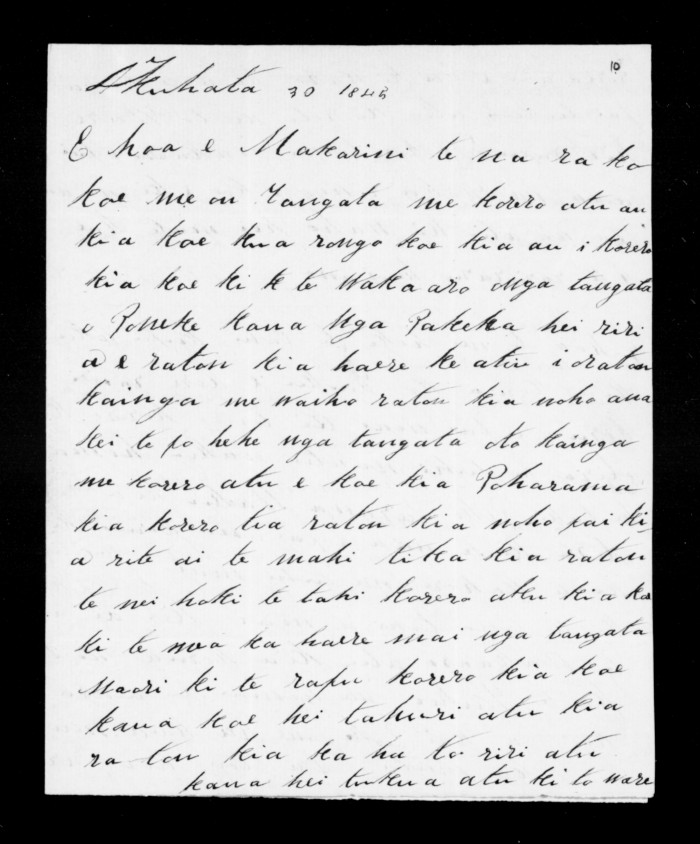 10
Akuhata 30 1845
E hoa e Makarini te na ra ko
koe me ou Tangata me korero atu au
kia koe kua rongo koe kia au i korero
kia koe ki te te Waka aro onga tangata
o Poneke kaua Nga Pakeka hei riri
a e ratou kia haere ke atu i oratou
kainga me Waiho ratou kia noho ana
kei te po hehe nga tangata oto kainga
me korero atu e koe kia Poharama
kia korero tia ratou kia noho pai ki
a rite ai te mahi tika kia ratou
te nei hoki te tahi korero atu kia koe
ki te mea ka haere mai nga tangata
Maori ki te rapu korero kia koe
kaua koe hei tahuri atu kia
ra tou kia ka ha to riri atu
kaua hei tukua atu ki to ware